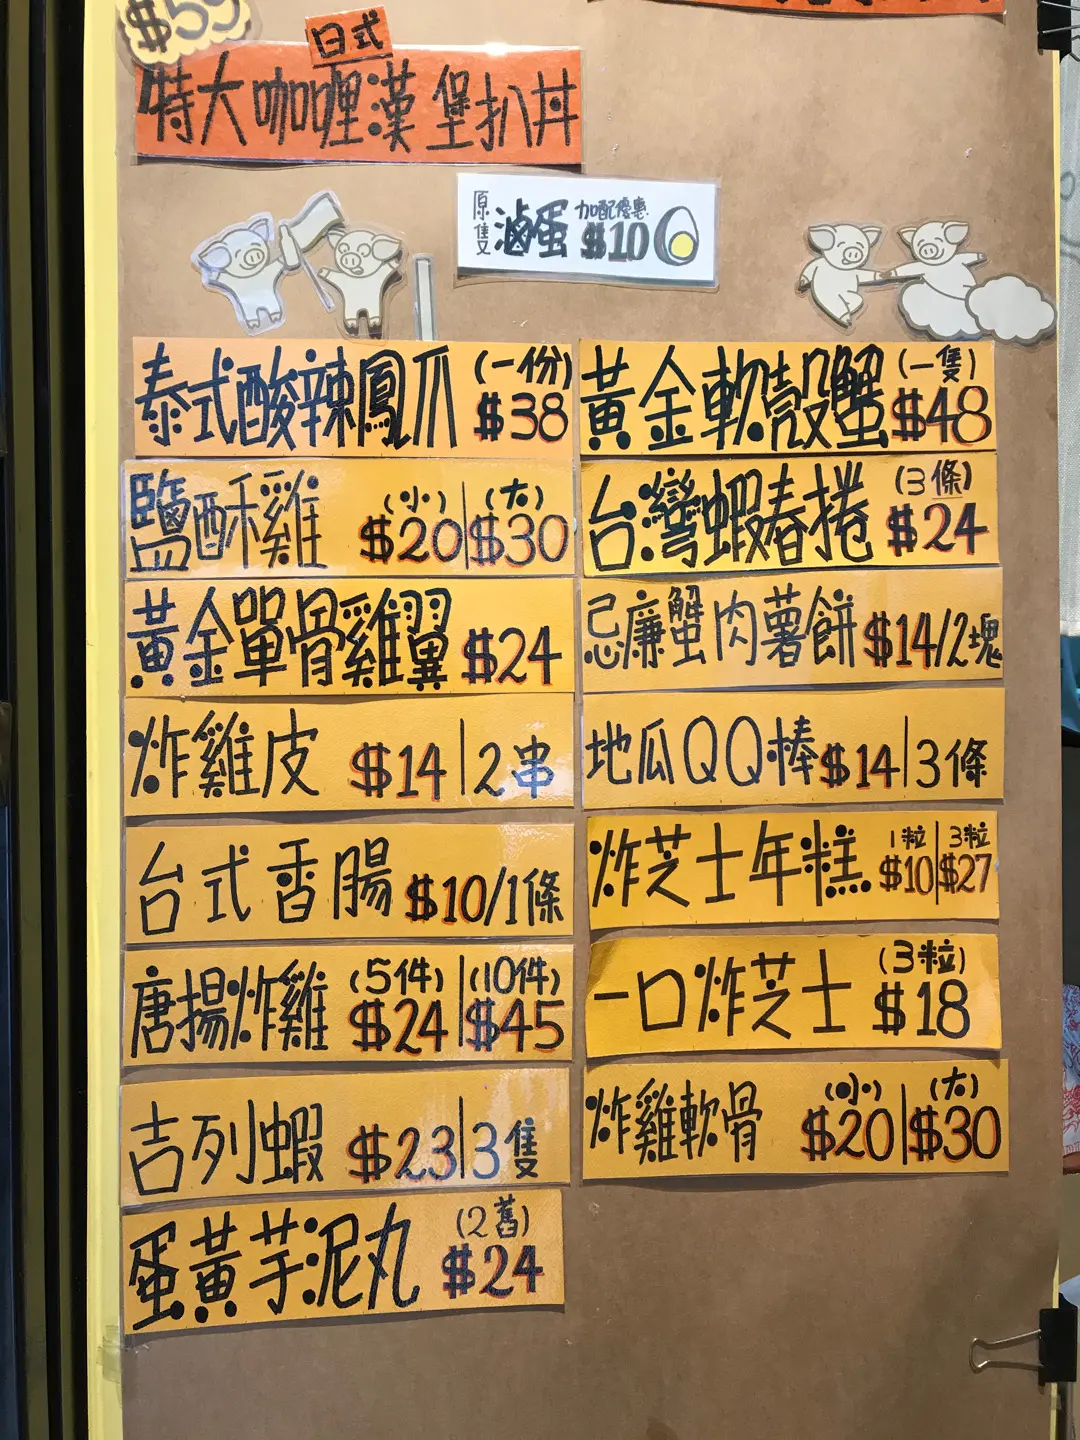 $59
日式
特大咖喱漢堡扒丼
原隻滷蛋 加配優惠 $10
泰式酸辣鳳爪 (一份) $38
鹽酥雞 (小) $20 | (大) $30
黃金單骨雞翼 $24
炸雞皮 $14 | 2串
台式香腸 $10/1條
唐揚炸雞 (5件) $24 | (10件) $45
吉列蝦 $23 | 3隻
蛋黃芋泥丸 (2舊) $24
黃金軟殼蟹 (一隻) $48
台灣蝦春捲 (3條) $24
忌廉蟹肉薯餅 $14/2塊
地瓜QQ棒 $14 | 3條
炸芝士年糕 1粒 $10 | 3粒 $27
一口炸芝士 (3粒) $18
炸雞軟骨 (小) $20 | (大) $30